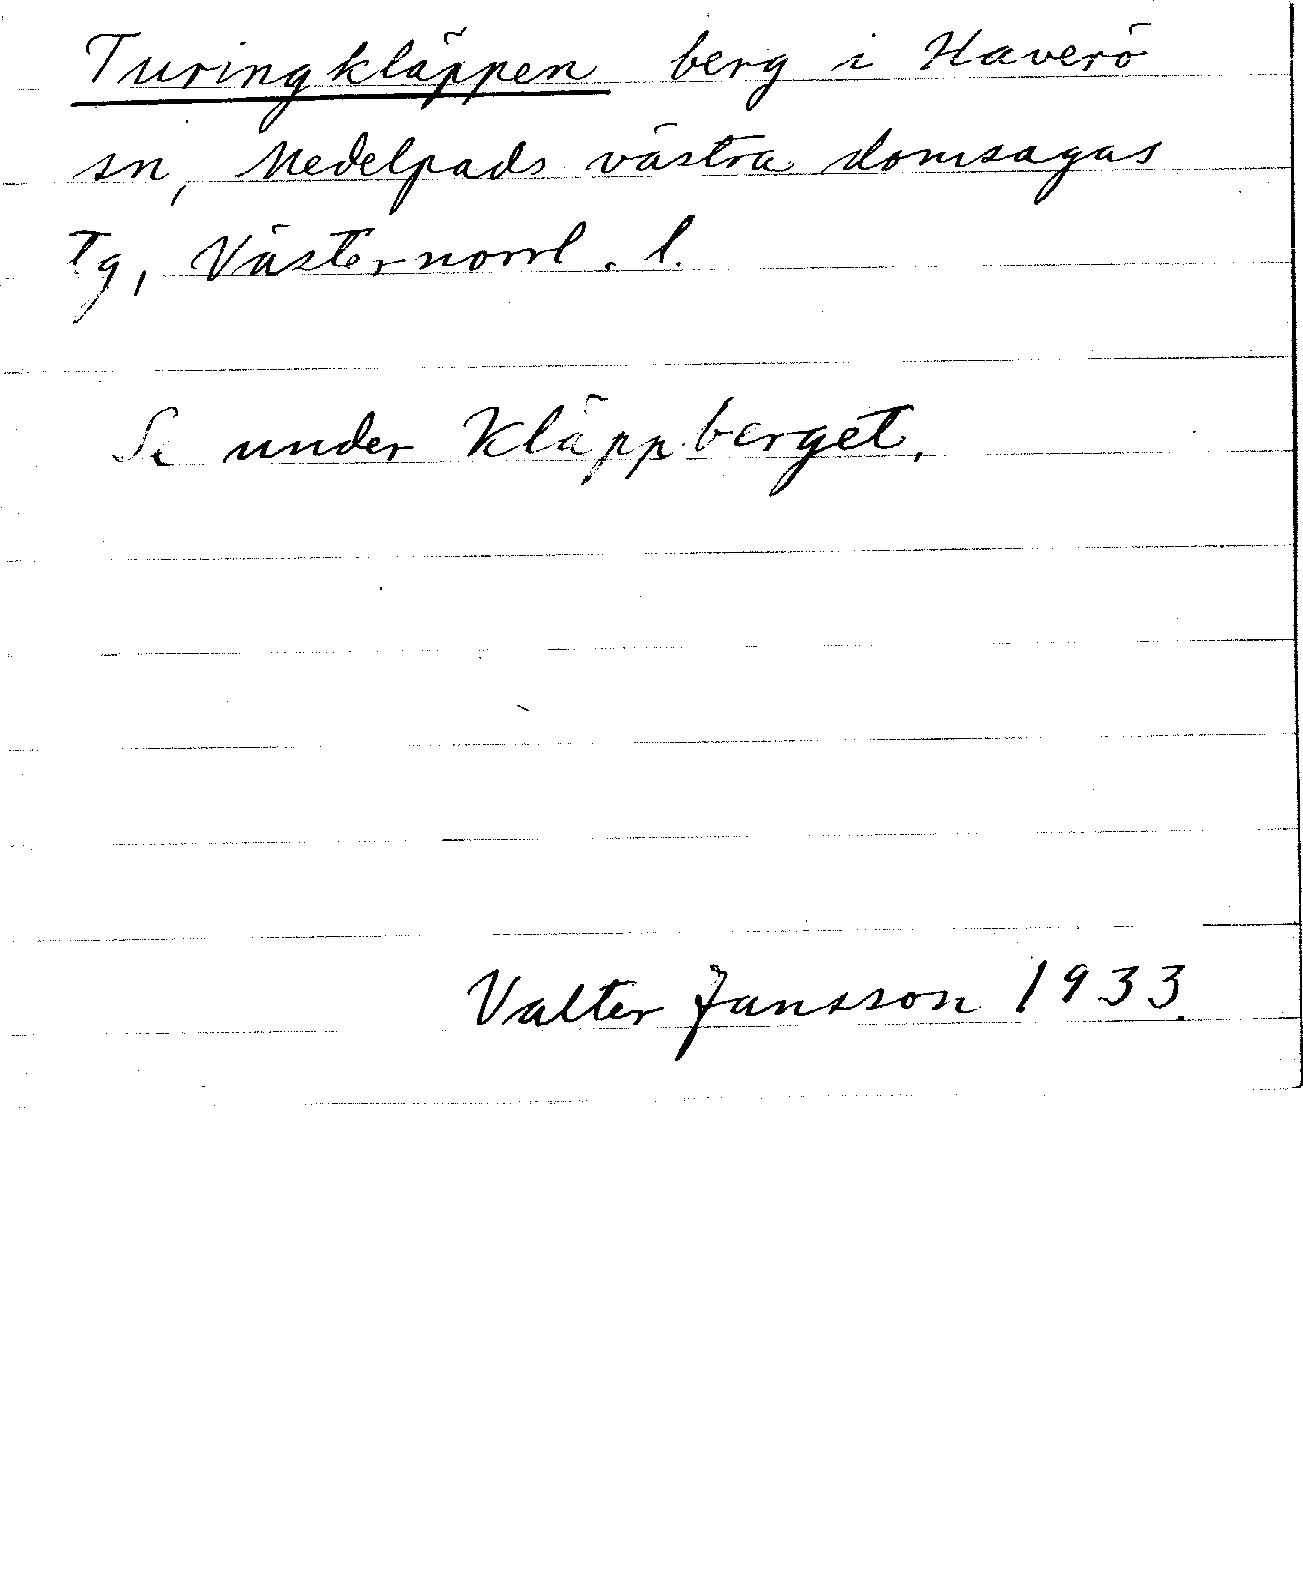 Turingkläppen berg i Haverö
sn, Medelpads västra domsagas
tg, Västernorrl. l.
Se under Kläppberget.
Valter Jansson 1933.